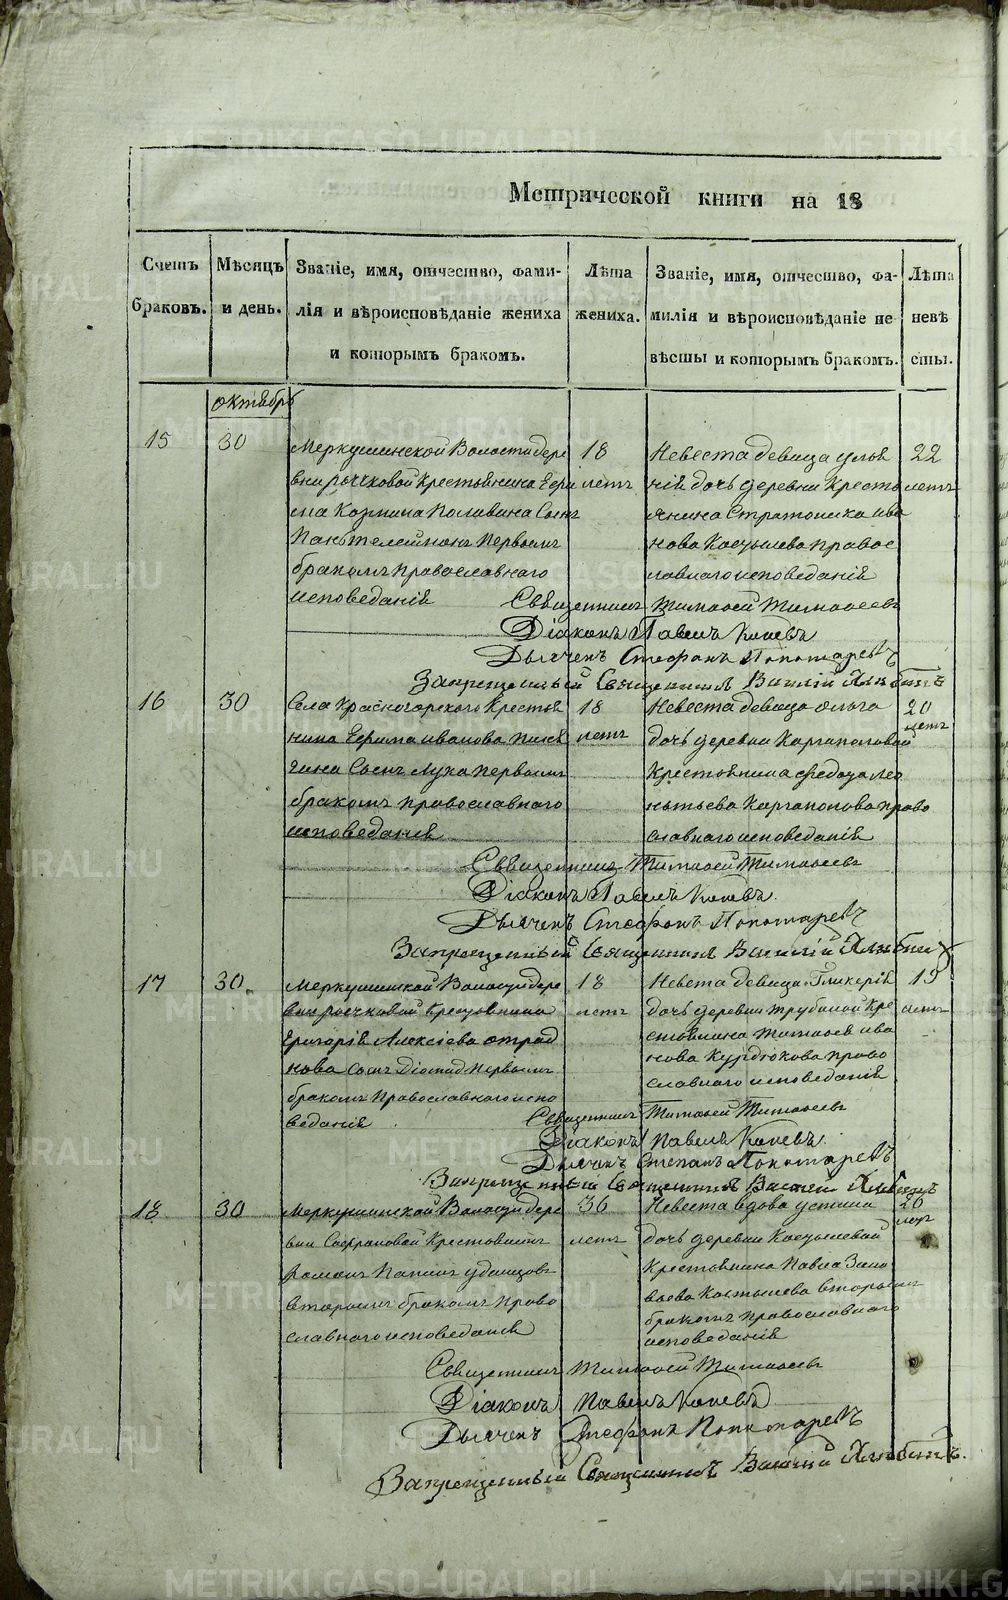 Метрической книги на 18
Счетъ браковъ.
Мѣсяцъ и день.
Званіе, имя, отчество, фами-
лія и вѣроисповѣданіе жениха
и которымъ бракомъ.
Лѣта жениха.
Званіе, имя, отчество, фа-
милія и вѣроисповѣданіе не
вѣсты и которымъ бракомъ.
Лѣта невѣ сты.
октябрь
15
30
Меркушинской Волости дере
вни рычковой крестьянина
сынъ
первымъ
бракомъ православнаго
исповеданія
18
летъ
Невеста девица улья
нія дочь деревни кресть
янина Стратоника ива
нова Костылева правос
лавнаго исповеданія
22
летъ
Священникъ Тимофей Тимофеевъ
Діаконъ Павелъ
Дьячекъ Стефанъ Пономаревъ
Запрещенный Священникъ Василій
16
30
Села Красногорского Крестья
нина Ефима иванова
сынъ Лука первымъ
бракомъ православнаго
исповеданія
18
летъ
Невеста девица ольга
дочь деревни Каргаполовой
крестьянина федота лео
нтьева Каргаполова право
славнаго исповеданія
20
летъ
Священникъ Тимофей Тимофеевъ
Діаконъ Павелъ
Дьячекъ Стефанъ Пономаревъ
Запрещенный Священникъ Василій
17
30
Меркушинской Волости дере
вни рычковой Крестьянина
Григорія Алексіева отрад
нова сынъ Діомид первымъ
бракомъ Православнаго испо
веданія
18
летъ
Невета девица Гликерія
дочь деревни трубиной кре
стьянина Тимофея ива
нова Курдюкова право
славнаго исповеданія
19
летъ
Священникъ Тимофей Тимофеевъ
Діаконъ Павелъ
Дьячекъ Степанъ Пономаревъ
Запрещенный Священникъ Василій
18
30
Меркушинской Волости дере
вни Сафроновой Крестьянинъ
романъ удинцовъ
вторымъ бракомъ право
славнаго исповеданія
36
летъ
Невеста вдова устина
дочь деревни Костылевой
крестьянина Павла Зино
вьева Костылева вторымъ
бракомъ православнаго
исповеданія
26
летъ
Священникъ Тимофей Тимофеевъ
Діаконъ Павелъ
Дьячекъ Стефанъ Пономаревъ
Запрещенный Священникъ Василій
METRIKI.GASO-URAL.RU